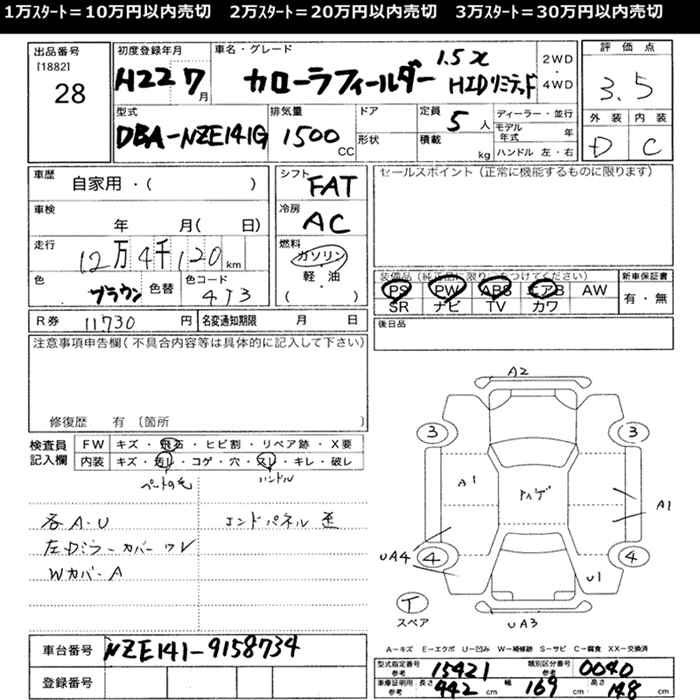 1万ｽﾀｰﾄ＝10万円以内売切　2万ｽﾀｰﾄ＝20万円以内売切　3万ｽﾀｰﾄ＝30万円以内売切
出品番号
[1882]
28
初度登録年月
H22 7月
車名・グレード
カローラフィールダー 1.5X
HIDリミテッド
2WD
・
4WD
評価点
3.5
外装 内装
D C
型式
DBA-NZE141G
排気量
1500 CC
ドア
形状
定員 5人
積載 kg
ディーラー・並行
モデル年式 年
ハンドル 左・右
車歴
自家用・( )
車検
年 月( 日)
走行
12万4千120km
色
ブラウン
色替
色コード
4T3
シフト
FAT
冷房
AC
燃料
ガソリン
軽・油
( )
セールスポイント(正常に機能するものに限ります)
装備品(純正品に限り○をつけてください)
PS PW ABS エアB AW
SR ナビ TV カワ
新車保証書
有・無
R券 11730 円 名変通知期限 月 日
後日品
注意事項申告欄(不具合内容等は具体的に記入して下さい)
修復歴 有(箇所
検査員
記入欄
FW キズ・飛石・ヒビ割・リペア跡・X要
内装 キズ・汚れ・コゲ・穴・スレ・キレ・破レ
ペットの毛 ハンドル
各A・U
左Dミラーカバーワレ
Wカバー A
エンドパネル
A2
3 3
A1
A1
UA4
4 4
U1
T
スペア
UA3
A－キズ E－エクボ U－凹み W－補修跡 S－サビ C－腐食 XX－交換済
車台番号 NZE141-9158734
登録番号
型式指定番号
参考
15421
類別区分番号
参考
0040
車庫証明用
参考
長さ 442 cm 幅 169 cm 高さ 148 cm